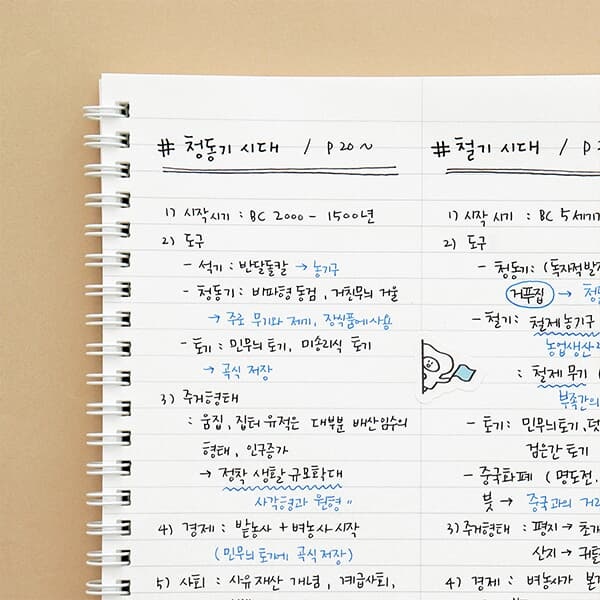 # 청동기 시대 / P 20 ~
1) 시작시기 : BC 2000 - 1500년
2) 도구
- 석기 : 반달돌칼 → 농기구
- 청동기 : 비파형 동검, 거친무늬 거울
→ 주로 무기와 제기, 장식품에 사용
- 토기 : 민무늬 토기, 미송리식 토기
→ 곡식 저장
3) 주거형태
: 움집, 집터 유적은 대부분 배산임수의
형태, 인구증가
→ 정착 생활 규모확대
사각형과 원형 "
4) 경제 : 밭농사 + 벼농사 시작
(민무늬 토기에 곡식 저장)
5) 사회 : 사유 재산 개념, 계급사회,
# 철기 시대 / P
1) 시작 시기 : BC 5세기
2) 도구
- 청동기 : (독자적발
거푸집 → 청
- 철기 : 철제 농기구
농업생산
: 철제 무기 (
부족간의
- 토기 : 민무늬토기, 덧
검은간 토기
- 중국화폐 (명도전,
붓 → 중국과의 거
3) 주거형태 : 평지 → 초가
산지 → 귀틀
4) 경제 : 벼농사가